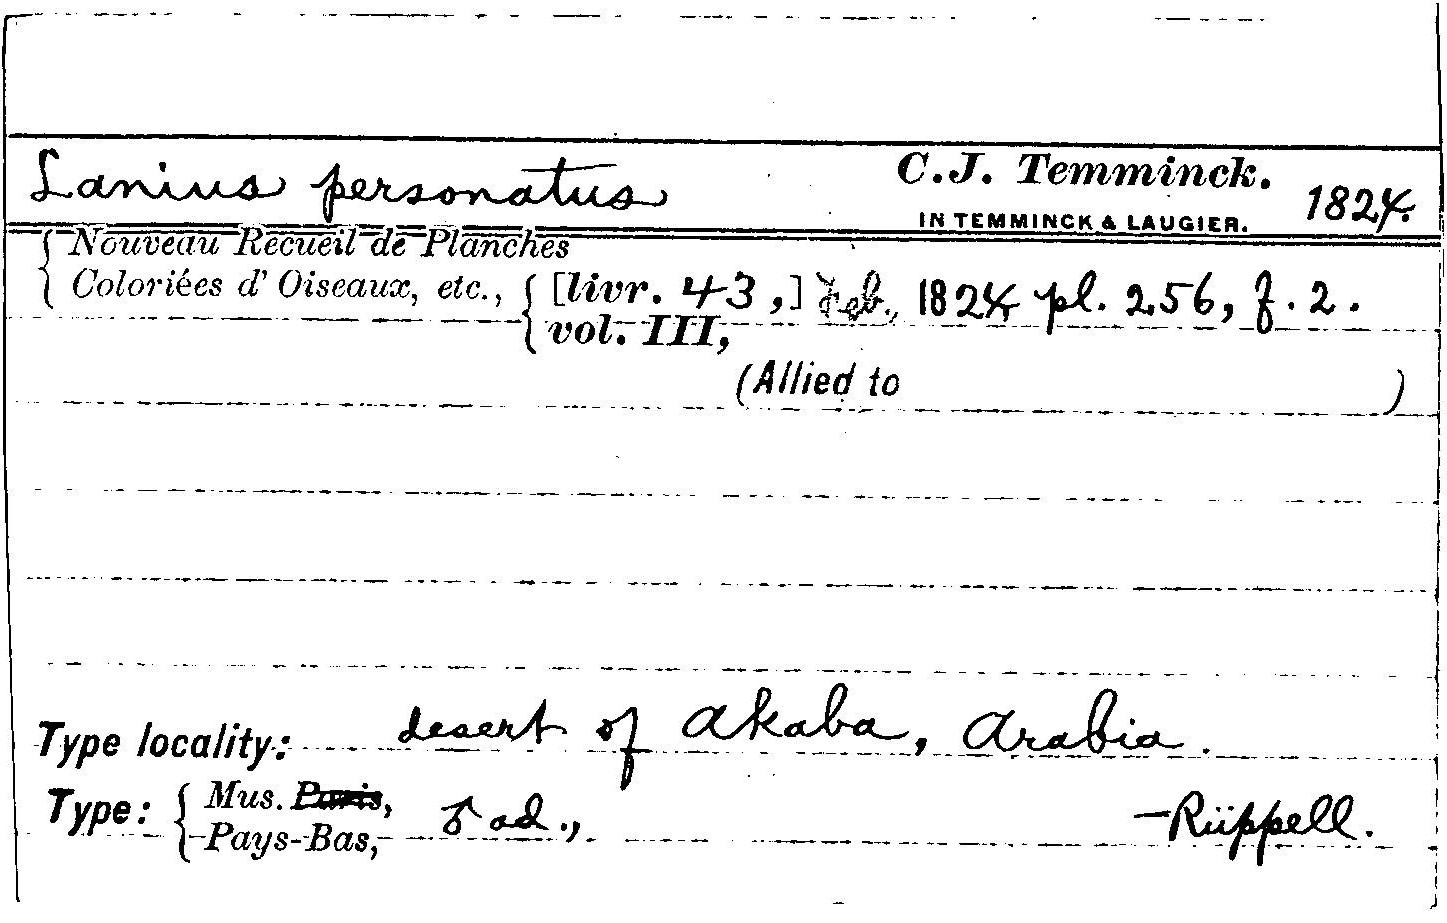 Lanius personatus C.J. Temminck. 1824.
IN TEMMINCK & LAUGIER.
Nouveau Recueil de Planches
Coloriées d' Oiseaux, etc., [livr. 43,] Feb., 1824 pl. 256, f. 2.
vol. III,
(Allied to )
Type locality: desert of Akaba, Arabia.
Type: Mus. Paris, ♂ ad., —Rüppell.
Pays-Bas,